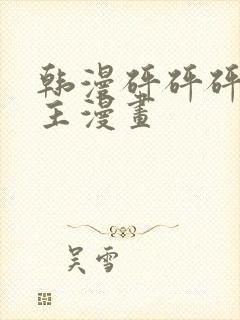 韩漫砰砰砰
主漫畫
吴雪